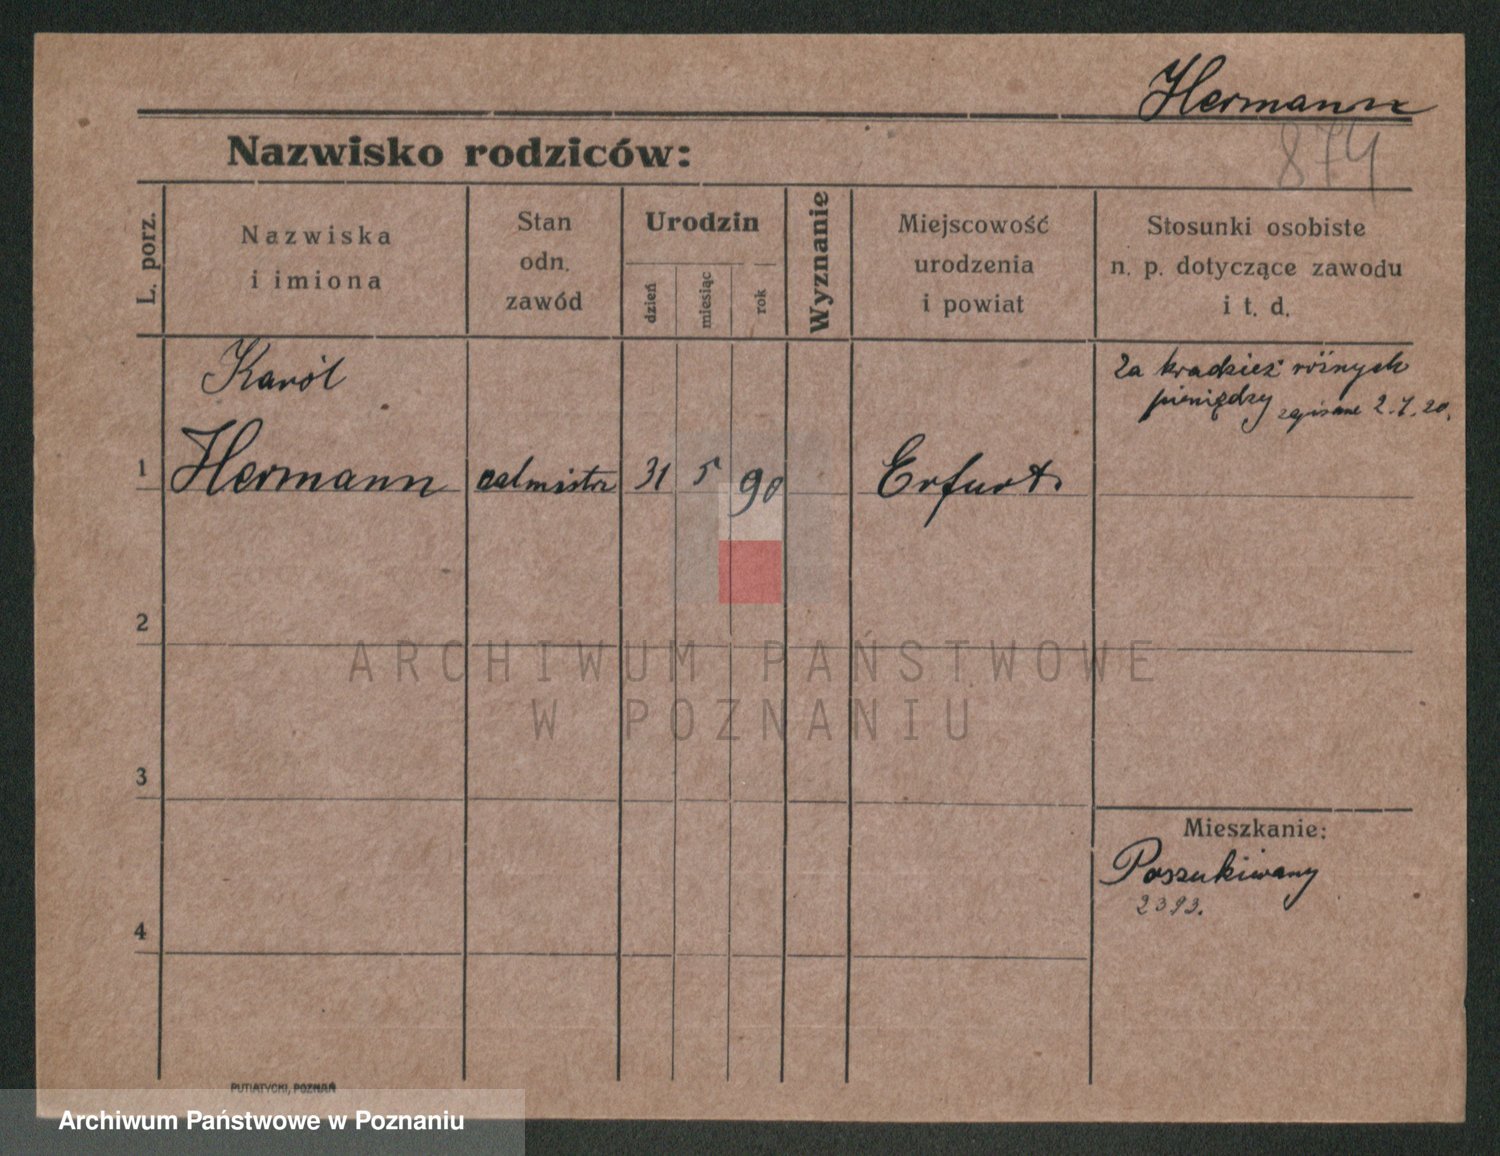 Hermann
874
Nazwisko rodziców:
L. porz.
Nazwiska
i imiona
Stan
odn.
zawód
Urodzin
dzień
miesiąc
rok
Wyznanie
Miejscowość
urodzenia
i powiat
Stosunki osobiste
n. p. dotyczące zawodu
i t. d.
Karól
Za kradzież różnych
pieniędzy zapisane 2.7.20.
1
Hermann
31
5
90
Erfurt
2
ARCHIWUM PAŃSTWOWE
W POZNANIU
3
Mieszkanie:
Poszukiwany
2393.
4
PUTIATYCKI, POZNAŃ
Archiwum Państwowe w Poznaniu